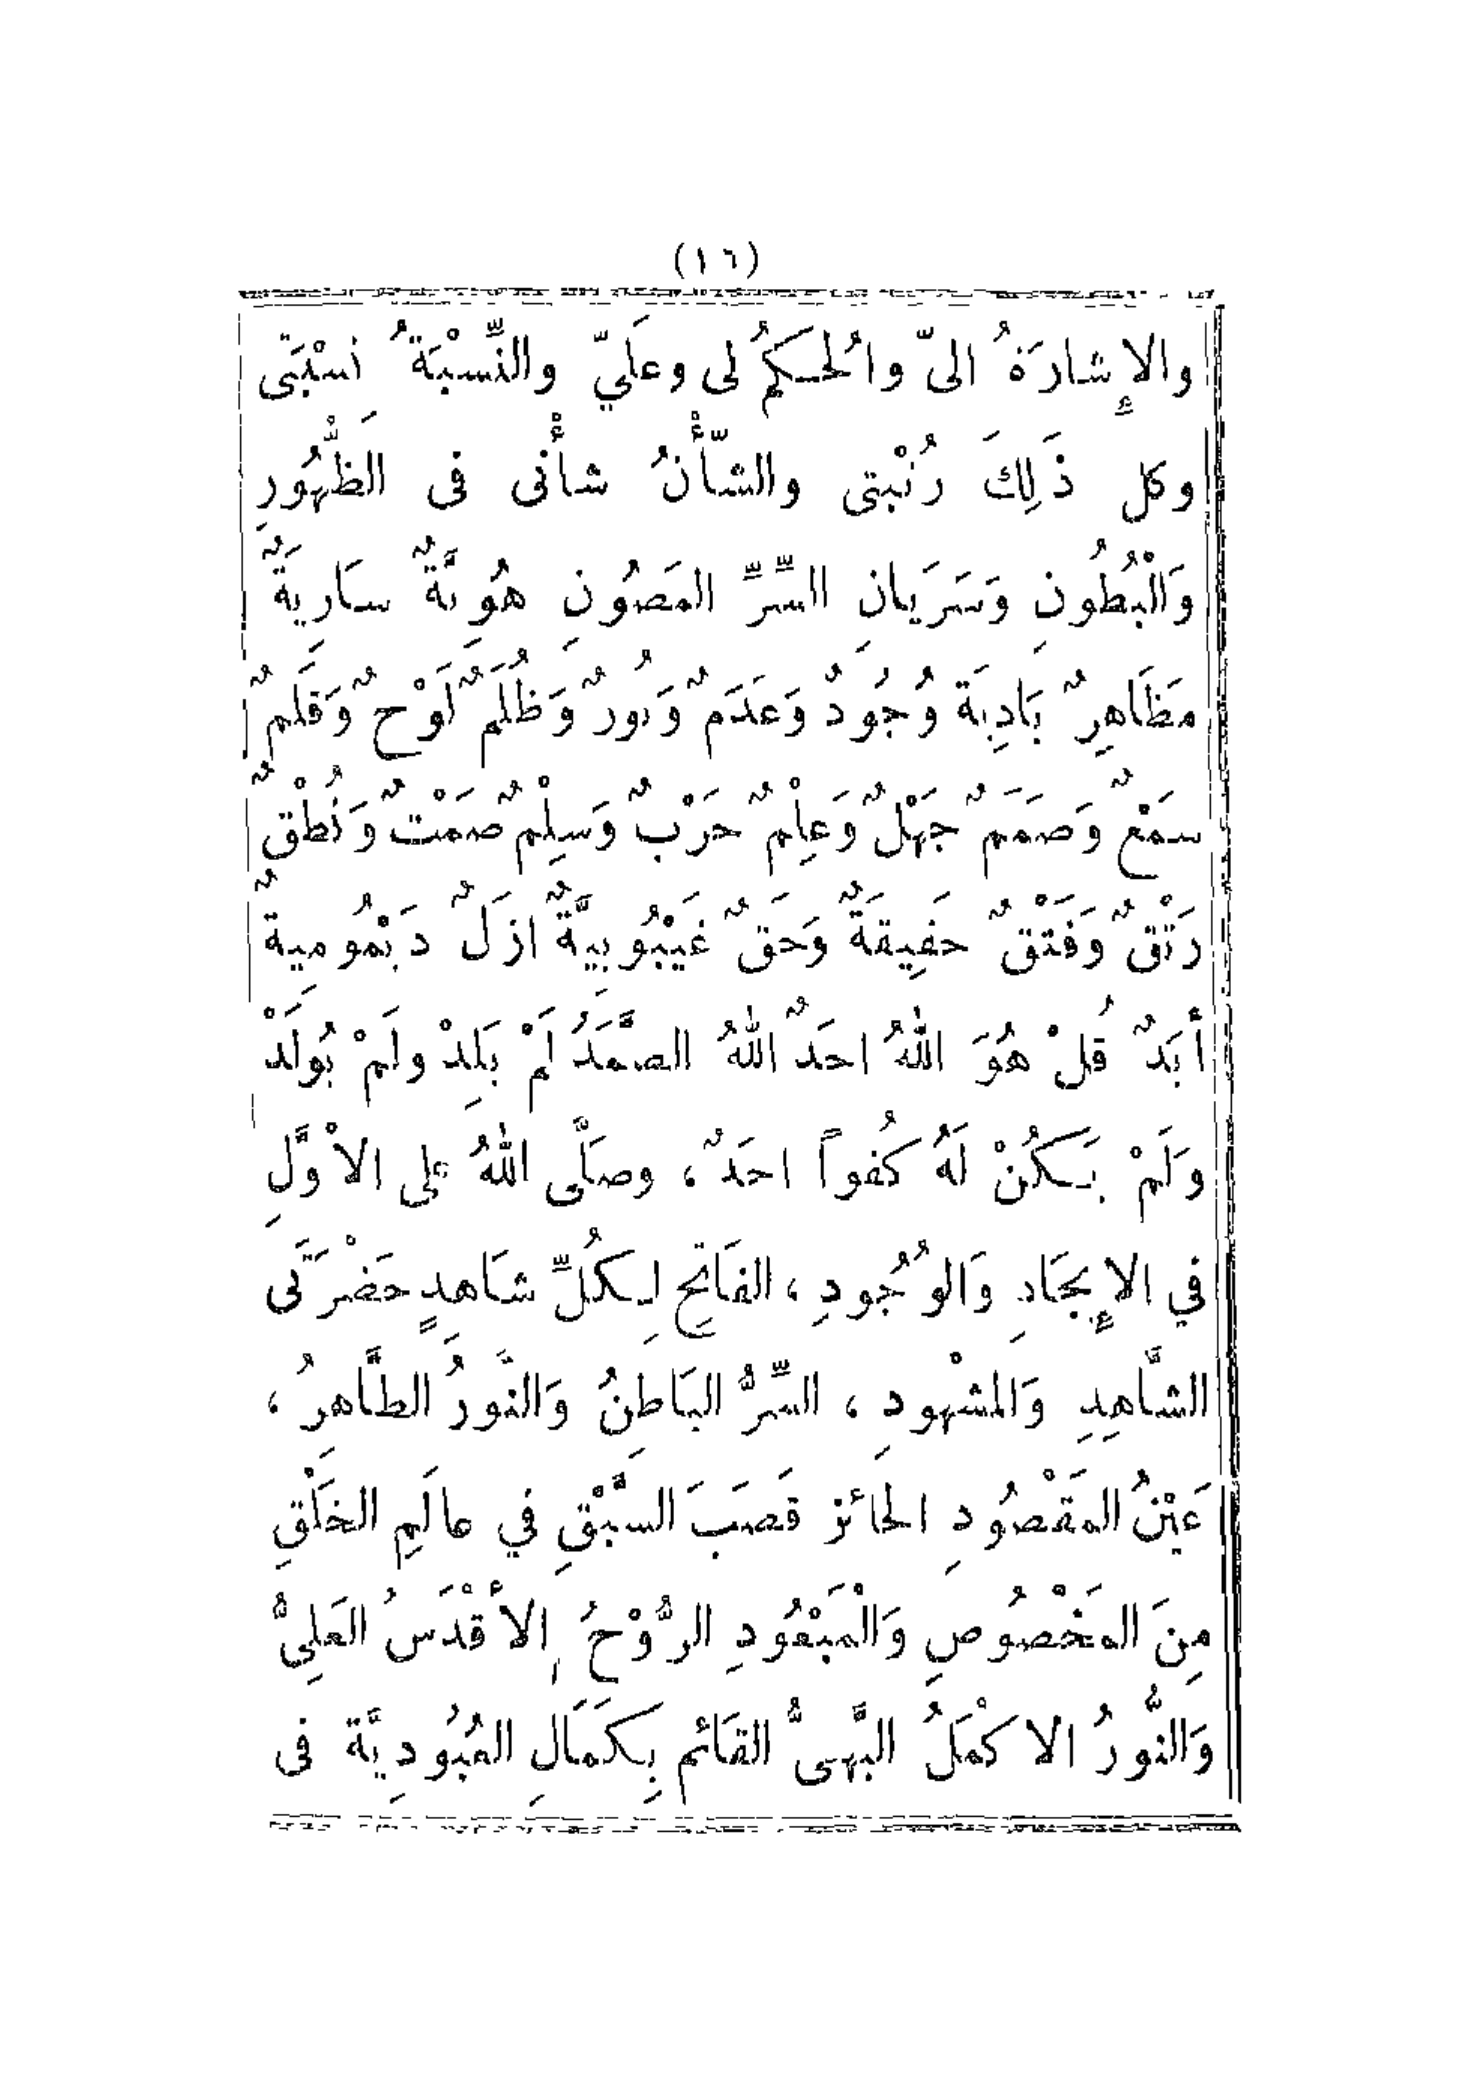 (١٦)
والإِشارَةُ الىّ والُحكمُ لى وعَليّ والنِّسْبَةُ نِسْبَتى
وكل ذَلِكَ رُتْبتى والشّأْنُ شأْنى فى الظُّهُورِ
وَالْبُطُونِ وَسَرَيانِ السِّرِّ المَصُونِ هُوِيَّةٌ سَارِيَةٌ
مَظَاهِرٌ بَادِيَة وُجُودٌ وَعَدَمٌ وَنُورٌ وَظُلَمٌ لَوْحٌ وَقَلَمٌ
سَمْعٌ وَصَمَمٌ جَهْلٌ وَعِلْمٌ حَرْبٌ وَسِلْمٌ صَمْتٌ وَنُطْقٌ
رَتْقٌ وَفَتْقٌ حَقِيقَةٌ وَحَقٌ غَيْبُوبِيَّةٌ ازَلٌ دَيْمُومِيةٌ
أبَدٌ قُلْ هُوَ اللهُ احَدٌ اللهُ الصَّمَدُ لَمْ يَلِدْ ولَمْ يُولَدْ
وَلَمْ يَكُنْ لَهُ كُفُواً احَدٌ ، وصَلَّى اللهُ على الاْوَّلِ
في الإِيجَادِ وَالوُجُودِ ، الفَاتِحِ لِكُلِّ شَاهدٍ حَضْرَتَى
الشَّاهِدِ وَالمشْهودِ ، السِّرُّ البَاطِنُ وَالنَّورُ الظَّاهِرُ ،
عَيْنُ المَقْصُودِ الحائز قَصَبَ السَّبْقِ في عالَمِ الخَلْقِ
مِنَ المَخْصُوصِ وَالْمَبْعُودِ الرُّوْحُ الأقْدَسُ العَلِىُّ
وَالنُّورُ الاكْمَلُ البَّهىُّ القَائم بِكَمَالِ العُبُودِيَّة فى